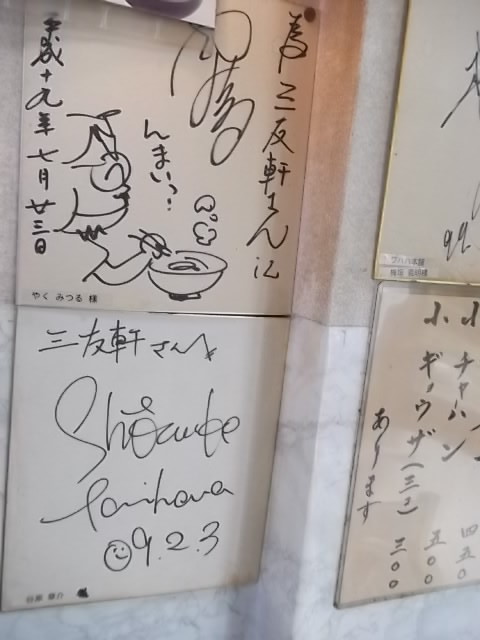 為三友軒さんに
んまいっ!
平成十九年七月廿三日
やく みつる 様
三友軒さんへ
Shosuke
Tanihara
09.2.3
谷原 章介
99.
ブハハ本舗
小チャハン 四五〇
小ギョウザ(三コ) 五〇〇
三〇〇
あります